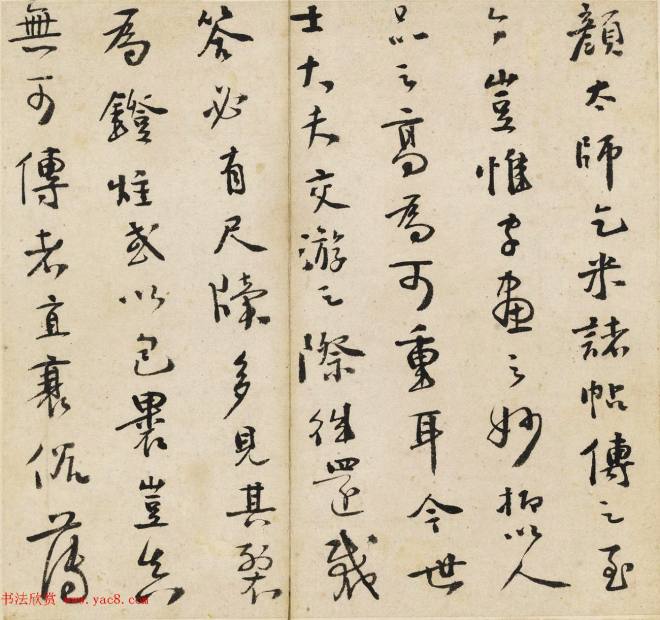 顏太師乞米諸帖傳之至
今豈惟字畫之妙抑以人
品之高為可重耳今世
士大夫交游之際往還裁
答必有尺牘多見其裂
為鐙炷或以包裹豈真
無可傳者直衰俗薄
书法欣赏 www.yac8.com